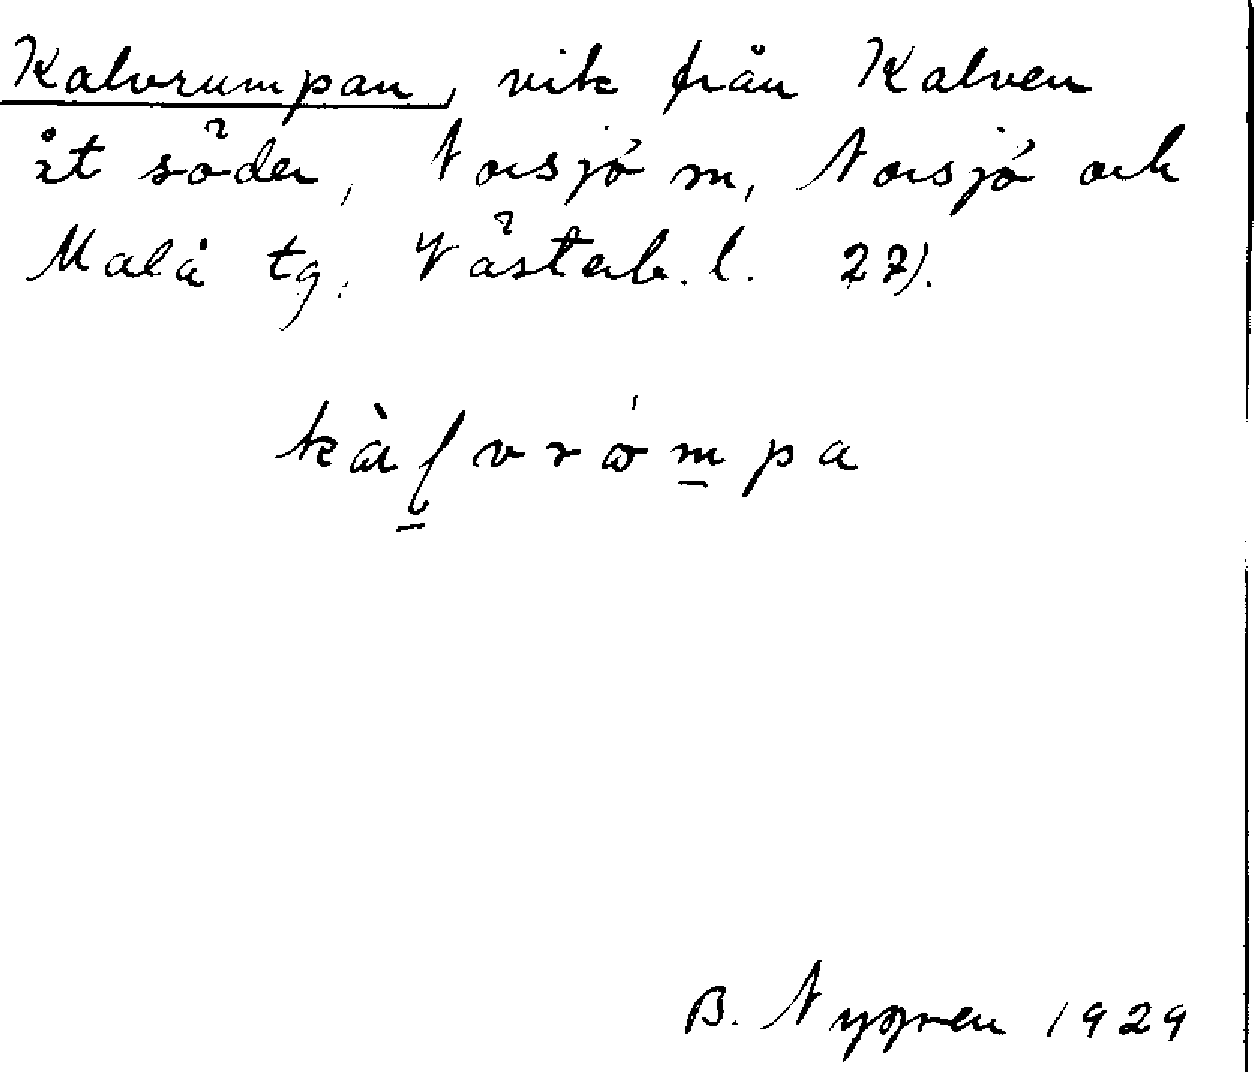 Kalvrumpan, vik från Kalven
åt söder, Norsjö sn, Norsjö och
Malå tg, Västerb. l. 27).
kàļvrómpa
B. Nygren 1929